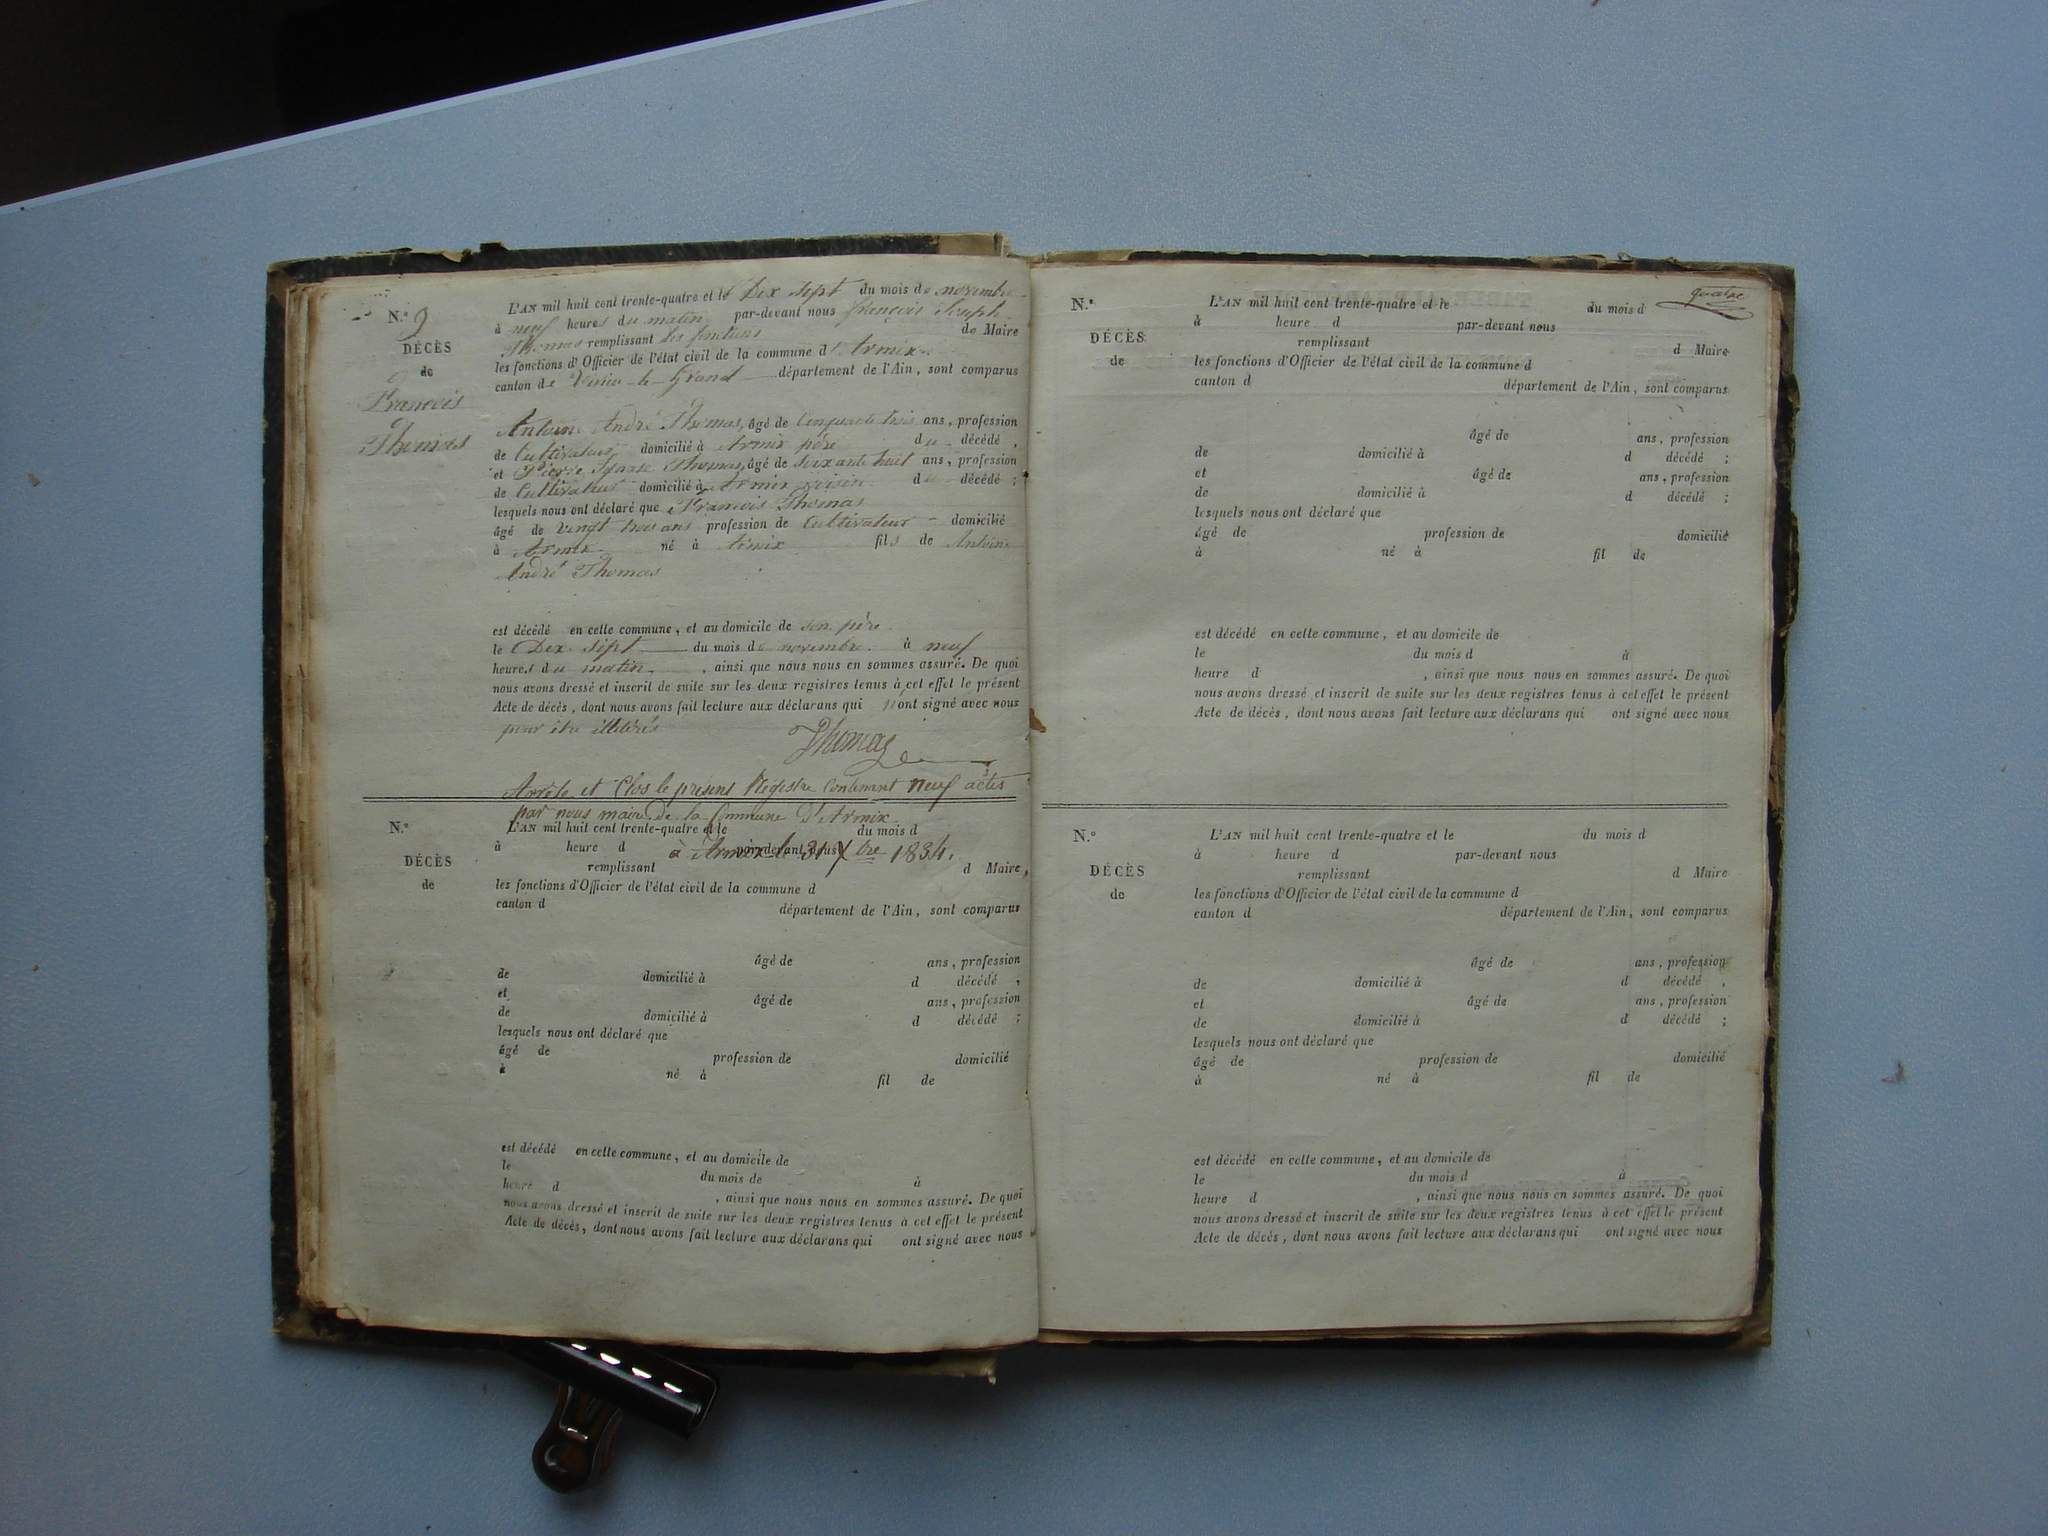 N.º 9
DÉCÈS
de
François
Thomas
L'AN mil huit cent trente-quatre et le Dix sept du mois de novembre
à neuf heures du matin par-devant nous françois Joseph
Thomas remplissant les fonctions de Maire
les fonctions d'Officier de l'état civil de la commune d'Armix
canton de Virieu-le-Grand département de l'Ain, sont comparus
Antoine André Thomas, âgé de Cinquante trois ans, profession
de Cultivateur domicilié à Armix père du décédé,
et Pierre Thomas, âgé de Soixante huit ans, profession
de Cultivateur domicilié à Armix voisin du décédé;
lesquels nous ont déclaré que François Thomas
âgé de vingt trois ans profession de Cultivateur domicilié
à Armix né à Armix fils de Antoine
André Thomas
est décédé en cette commune, et au domicile de son père
le Dix sept du mois de novembre à neuf
heures du matin, ainsi que nous nous en sommes assuré. De quoi
nous avons dressé et inscrit de suite sur les deux registres tenus à cet effet le présent
Acte de décès, dont nous avons fait lecture aux déclarans qui n'ont signé avec nous
pour être illitérés
Thomas
Arrêté et Clos le présent Régistre Contenant neuf actes
par nous maire de la Commune d'Armix
à Armix le 31 Xbre 1834.
N.º
DÉCÈS
de
L'AN mil huit cent trente-quatre et le du mois d
à heure d par-devant nous
remplissant d Maire,
les fonctions d'Officier de l'état civil de la commune d
canton d département de l'Ain, sont comparus
âgé de ans, profession
de domicilié à d décédé,
et âgé de ans, profession
de domicilié à d décédé;
lesquels nous ont déclaré que
âgé de profession de domicilié
à né à fil de
est décédé en cette commune, et au domicile de
le du mois de à
heure d , ainsi que nous nous en sommes assuré. De quoi
nous avons dressé et inscrit de suite sur les deux registres tenus à cet effet le présent
Acte de décès, dont nous avons fait lecture aux déclarans qui ont signé avec nous
quatre
N.º
DÉCÈS
de
L'AN mil huit cent trente-quatre et le du mois d
à heure d par-devant nous
remplissant d Maire
les fonctions d'Officier de l'état civil de la commune d
canton d département de l'Ain, sont comparus
âgé de ans, profession
de domicilié à d décédé;
et âgé de ans, profession
de domicilié à d décédé;
lesquels nous ont déclaré que
âgé de profession de domicilié
à né à fil de
est décédé en cette commune, et au domicile de
le du mois d à
heure d , ainsi que nous nous en sommes assuré. De quoi
nous avons dressé et inscrit de suite sur les deux registres tenus à cet effet le présent
Acte de décès, dont nous avons fait lecture aux déclarans qui ont signé avec nous
N.º
DÉCÈS
de
L'AN mil huit cent trente-quatre et le du mois d
à heure d par-devant nous
remplissant d Maire
les fonctions d'Officier de l'état civil de la commune d
canton d département de l'Ain, sont comparus
âgé de ans, profession
de domicilié à d décédé,
et âgé de ans, profession
de domicilié à d décédé;
lesquels nous ont déclaré que
âgé de profession de domicilié
à né à fil de
est décédé en cette commune, et au domicile de
le du mois d à
heure d , ainsi que nous nous en sommes assuré. De quoi
nous avons dressé et inscrit de suite sur les deux registres tenus à cet effet le présent
Acte de décès, dont nous avons fait lecture aux déclarans qui ont signé avec nous